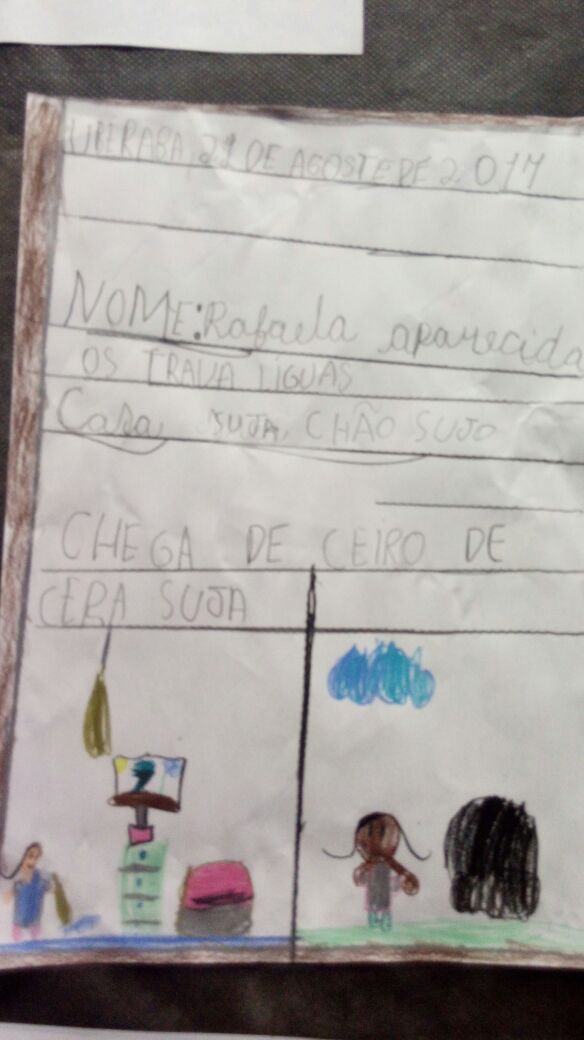 UBERABA, 29 DE AGOSTE DE 2017
NOME: Rafaela aparecida
OS TRAVA LIGUAS
Casa SUJA, CHÃO SUJO
CHEGA DE CEIRO DE
CERA SUJA